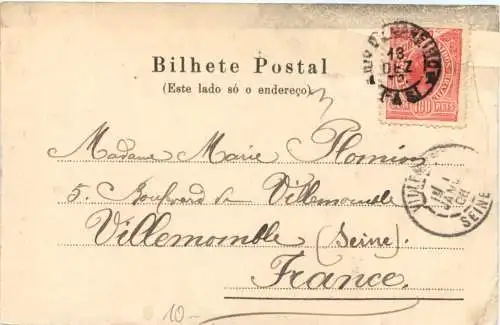 Bilhete Postal
(Este lado só o endereço)
RIO DE JANEIRO
18
DEZ
100 REIS
Madame Marie Plomion
5. Boulevard de Villemomble
Villemomble (Seine).
France.
SEINE
10-